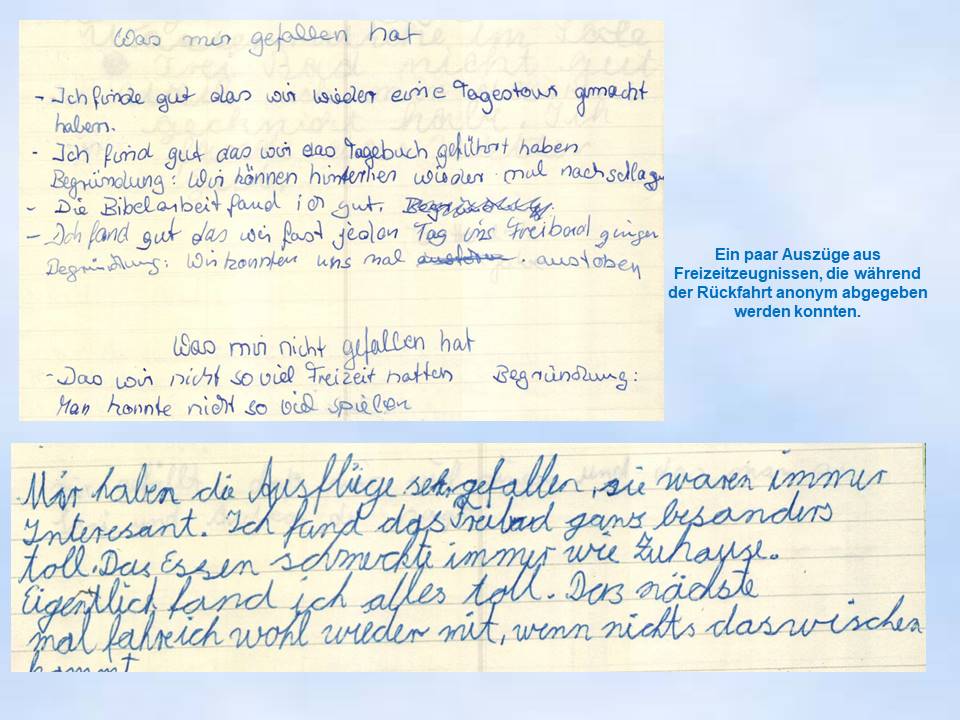 Was mir gefallen hat
- Ich finde gut das wir wieder eine Tagestour gemacht
haben.
- Ich fand gut das wir das Tagebuch geführt haben
Begründung: Wir können hinterher wieder mal nachschlagen
- Die Bibelarbeit fand ich gut.
- Ich fand gut das wir fast jeden Tag ins Freibad gingen
Begründung: Wir konnten uns mal austoben
Was mir nicht gefallen hat
- Das wir nicht so viel Freizeit hatten Begründung:
Man konnte nicht so viel spielen
Ein paar Auszüge aus
Freizeitzeugnissen, die während
der Rückfahrt anonym abgegeben
werden konnten.
Mir haben die Ausflüge sehr gefallen, sie waren immer
Interesant. Ich fand das Freibad ganz besonders
toll. Das Essen schmeckte immer wie Zuhause.
Eigentlich fand ich alles toll. Das nächste
mal fahr ich wohl wieder mit, wenn nichts daswischen
kommt